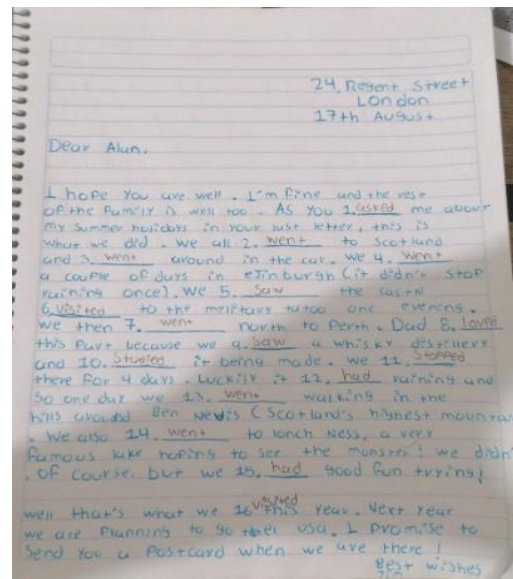 24, Regent Street
London
17th August
Dear Alan,
I hope you are well. I'm fine and the rest
of the family is well too. As you 1. asked me about
my summer holidays in your last letter, this is
what we did. We all 2. went to Scotland
and 3. went around in the car. We 4. went
a couple of days in eTinburgh (it didn't stop
raining once). We 5. saw the castle
6. visited to the melitary tatoo one evening.
we then 7. went north to Perth. Dad 8. loved
this part because we 9. saw a whisky distillery
and 10. studied it being made. we 11. stopped
there for 4 days. Luckily it 12. had raining and
so one day we 13. went walking in the
hills around Ben Nevis (Scotland's highest mountai
. We also 14. went to lonch Ness, a very
famous lake hoping to see the monster! we didn'
, of course, but we 15. had good fun trying!
well that's what we 16 visited this year. Next year
we are planning to go USA. I promise to
send you a postcard when we are there!
Best wishes